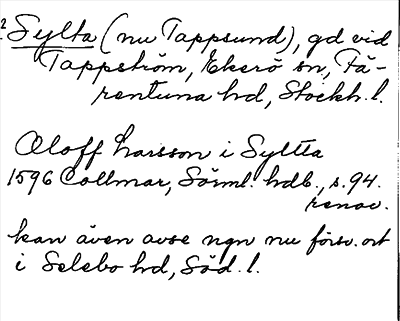 ? Sylta (nu Tappsund), gd vid
Tappström, Ekerö sn, Fä-
rentuna hd, Stockh. l.
Oloff Larsson i Syltta
1596 Collmar, Sörml. hdb., s. 94.
renov.
kan även avse ngn nu försv. ort
i Selebo hd, Söd. l.